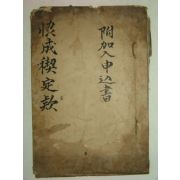 附加入申込書
成稧定款